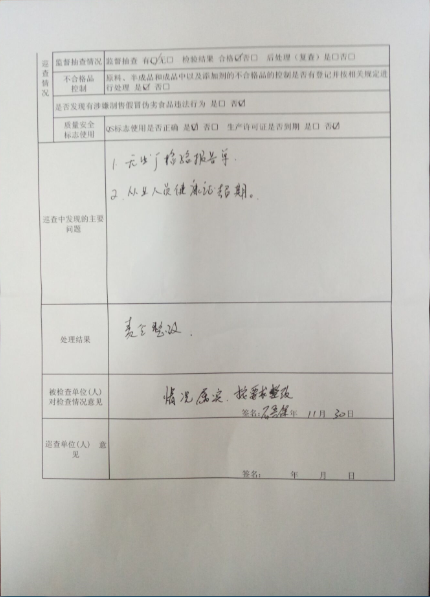 巡查情况
监督抽查情况 监督抽查 有☑无□ 检验结果 合格☑否□ 后处理（复查）是□否□
不合格品控制 原料、半成品和成品中以及添加剂的不合格品的控制是否有登记并按相关规定进行处理 是☑ 否□
是否发现有涉嫌制售假冒伪劣食品违法行为 是□ 否☑
质量安全标志使用 QS标志使用是否正确 是☑ 否□ 生产许可证是否到期 是□ 否☑
巡查中发现的主要问题
1. 无出厂检验报告单.
2. 从业人员健康证超期。
处理结果
责令整改.
被检查单位(人)对检查情况意见
情况属实、按要求整改
签名: 年 11月 30日
巡查单位(人) 意见
签名: 年 月 日